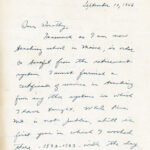 September 10, 1943
Dear Dorothy,
Inasmuch as I am now
teaching school in Maine, in order
to benefit from the retirement
system I must furnish a
certificate of service in teaching
from any other system in which
I have taught. While this
was is not public, which is
first year in which I worked
there - 1942-1943. with the day